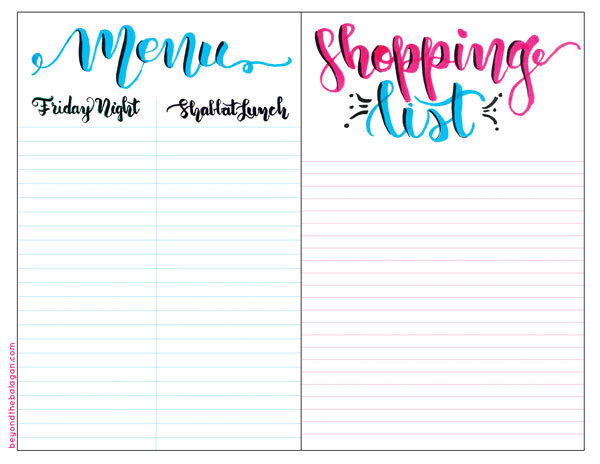 Menu
Friday Night Shabbat Lunch
Shopping
list
beyondthebalagan.com